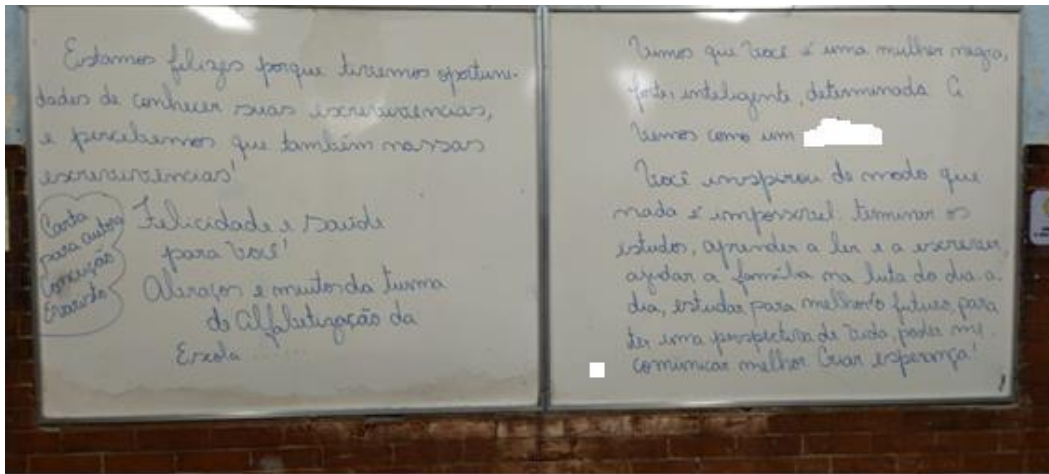 Estamos felizes porque tivemos oportuni-
dades de conhecer suas escrevivências,
e percebemos que também nossas
escrevivências!
Carta
para autora
Conceição
Evaristo
Felicidade e saúde
para você!
Abraços e muitos da turma
de Alfabetização da
Escola
Vimos que você é uma mulher negra,
forte, inteligente, determinada. A
vemos como um
Você inspirou de modo que
nada é impossível terminar os
estudos, aprender a ler e a escrever
ajudar a família na luta do dia a
dia, estudar para melhor o futuro, para
ter uma perspectiva de vida, poder me
comunicar melhor. Criar esperança!